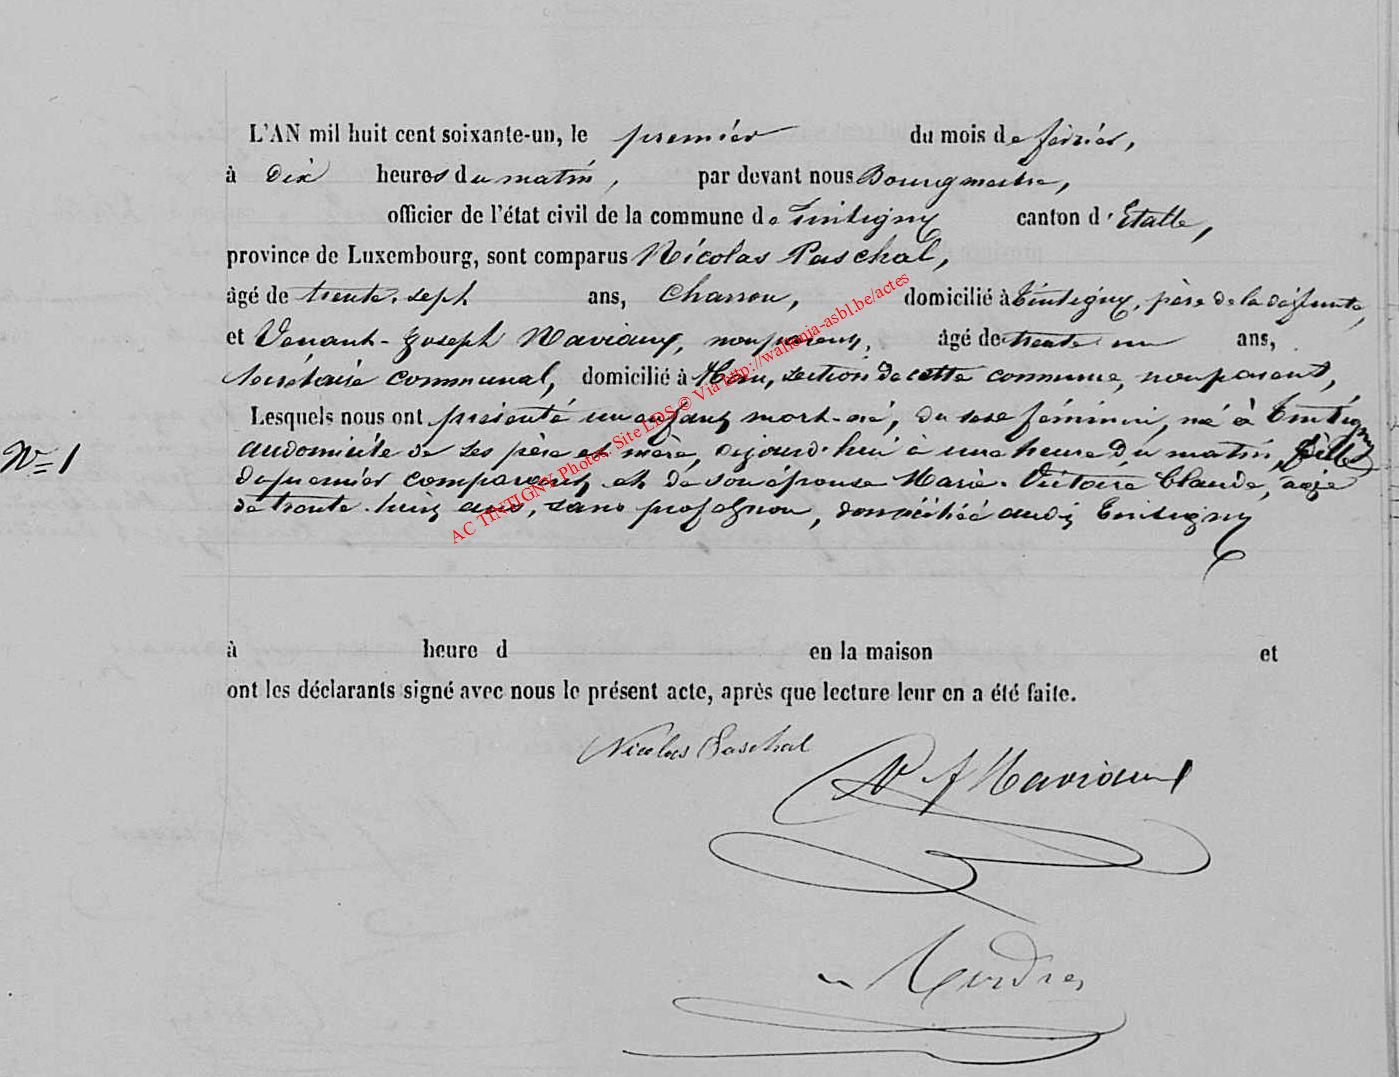 L'AN mil huit cent soixante-un, le premier du mois de février,
à dix heures du matin, par devant nous Bourgmestre,
officier de l'état civil de la commune de Tintigny canton d'Etalle,
province de Luxembourg, sont comparus Nicolas Paschal,
âgé de trente-sept ans, Charron, domicilié à Tintigny, père de la défunte,
et Venant-Joseph Maviaux, non parent, âgé de trente un ans,
Secrétaire communal, domicilié à section de cette commune, non parent,
Lesquels nous ont présenté un enfant mort-né, du sexe féminin, né à Tintigny
N° 1 au domicile de ses père et mère, cejourd'hui à une heure du matin, fille
du premier comparant et de son épouse Marie-Victoire Claude, agée
de trente-huit ans, sans profession, domiciliée audit Tintigny
à heure d en la maison et
ont les déclarants signé avec nous le présent acte, après que lecture leur en a été faite.
Nicolas Paschal
V J Maviaux
AC TINTIGNY Photos: Site LDS © Via http://wallonia-asbl.be/actes